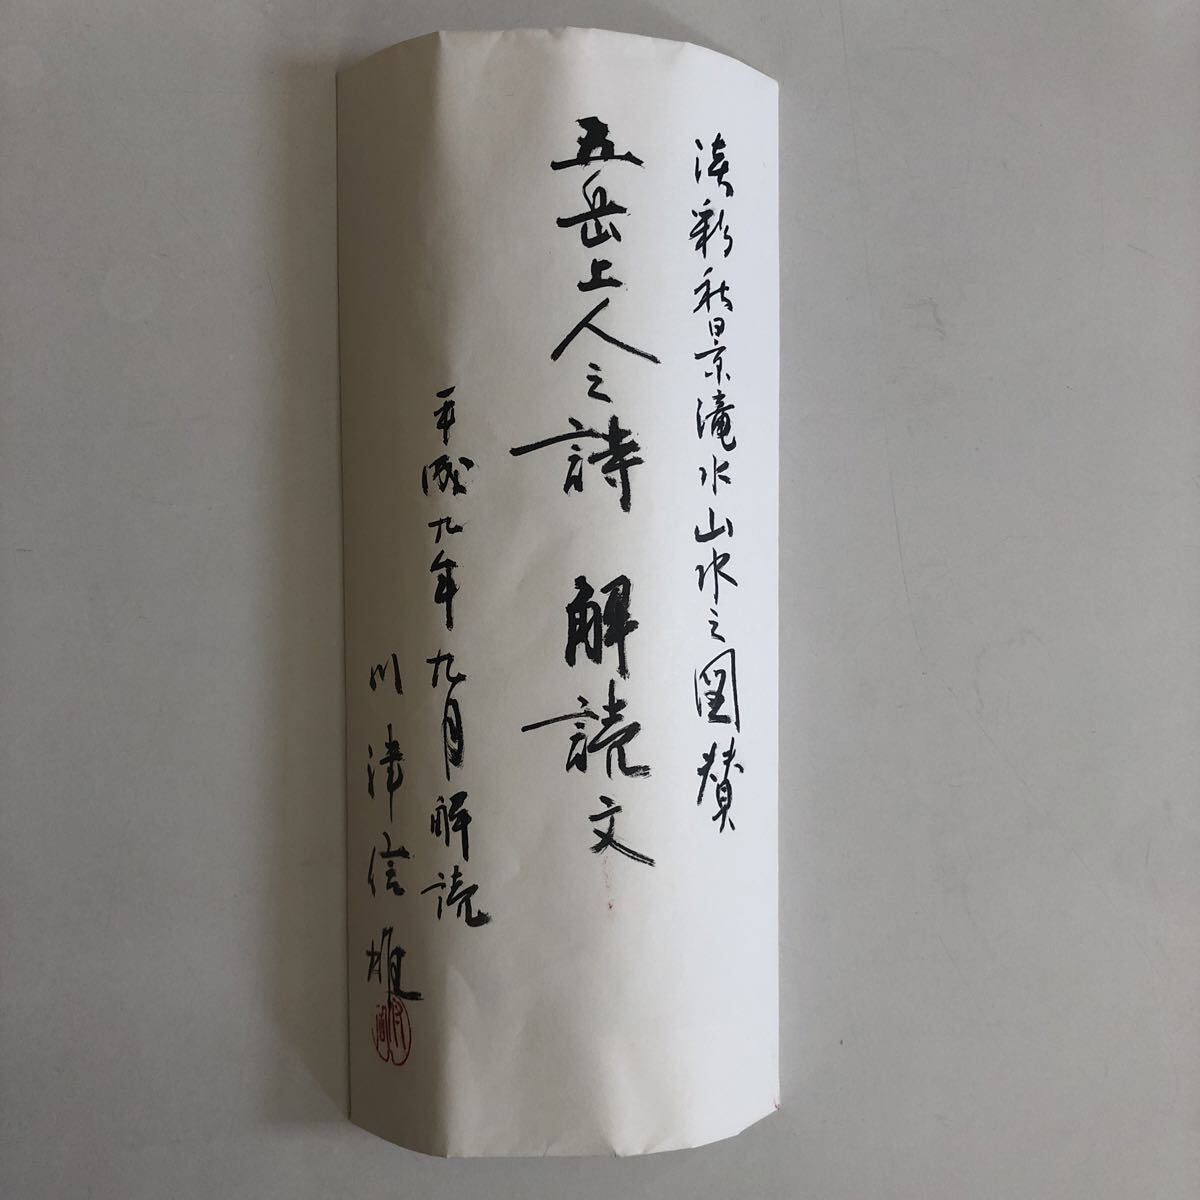 淡彩秋景滝水山水之図賛
五岳上人之詩 解読文
平成九年九月解読
川津信雄